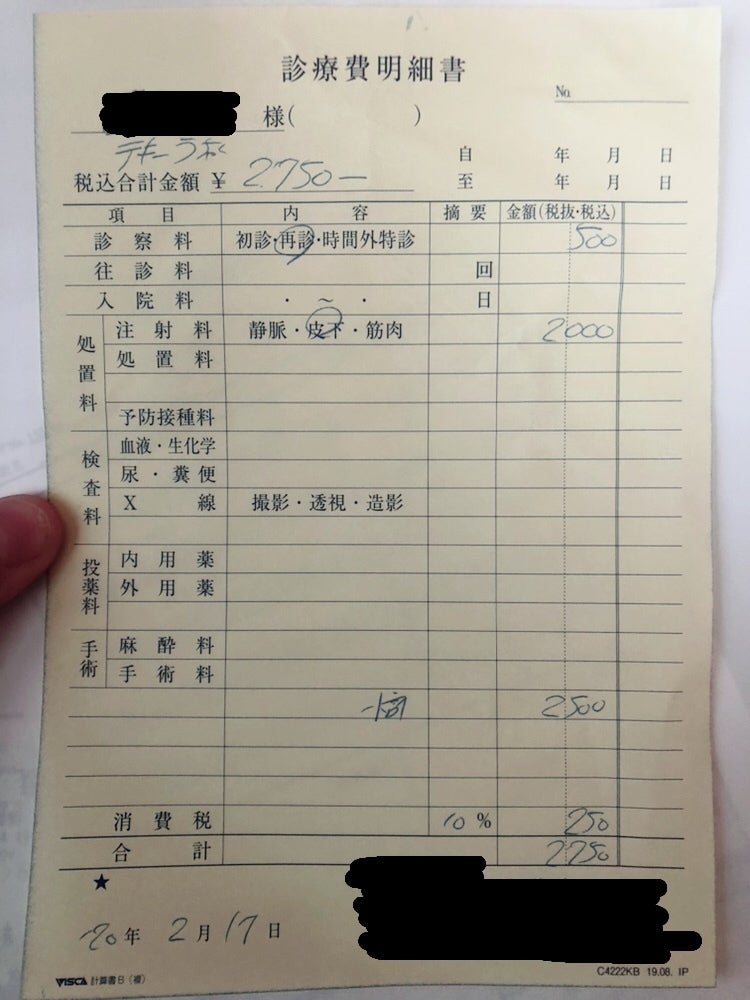 診療費明細書
No.
様( )
テキーラ
税込合計金額 ¥ 2750−
自 年 月 日
至 年 月 日
項目 内容 摘要 金額(税抜・税込)
診察料 初診・再診・時間外特診 500
往診料 回
入院料 ・ ~ ・ 日
処置料
注射料 静脈・皮下・筋肉 2000
処置料
予防接種料
検査料
血液・生化学
尿・糞便
X線 撮影・透視・造影
投薬料
内用薬
外用薬
手術
麻酔料
手術料
2500
消費税 10% 250
合計 2750
★
'20年 2月17日
VISCA 計算書B(複)
C4222KB 19.08. IP